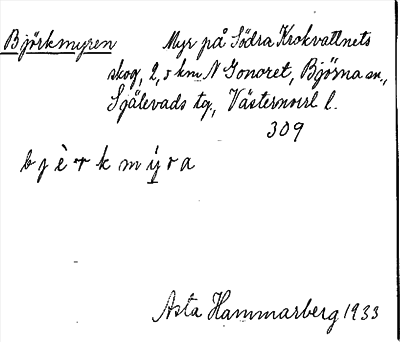 Björkmyren Myr på Södra Krokvattnets
skog, 2,5 km N Gonoret, Björna sn.,
Själevads tg., Västernorrl l.
309
b j è r k m ý r a
Asta Hammarberg 1933